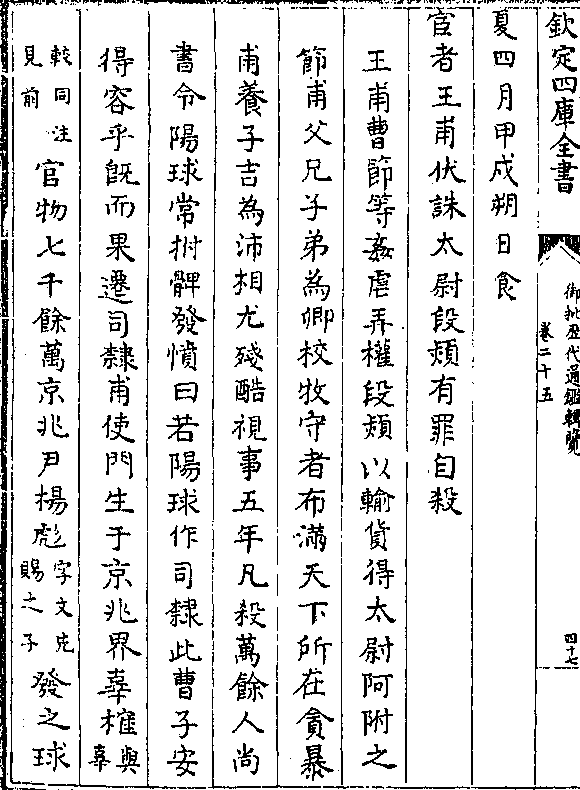 欽定四庫全書
御批歷代通鑑輯覽
卷二十五
四十七
夏四月甲戌朔日食
宦者王甫伏誅太尉段熲有罪自殺
王甫曹節等姦虐弄權段熲以輸貨得太尉阿附之
節甫父兄子弟為卿校牧守者布滿天下所在貪暴
甫養子吉為沛相尤殘酷視事五年凡殺萬餘人尚
書令陽球常拊髀發憤曰若陽球作司隸此曹子安
得容乎既而果遷司隸甫使門生于京兆界辜榷與辜
較同注見前官物七千餘萬京兆尹楊彪字文先賜之子發之球